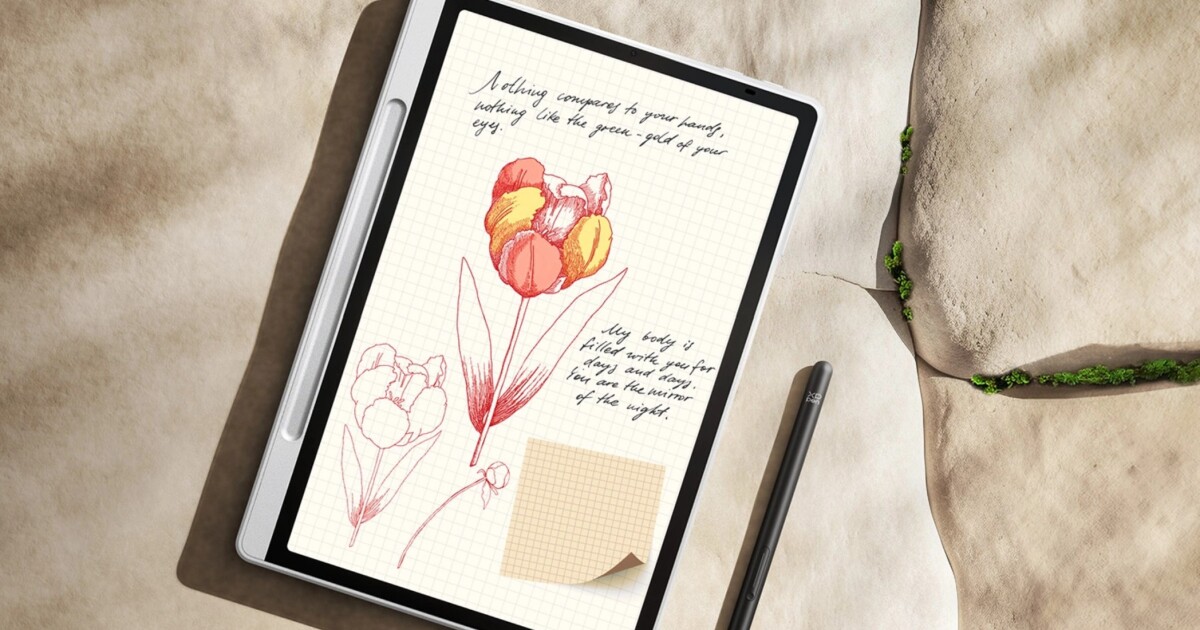 Nothing compares to your hands,
nothing like the green-gold of your
eyes.
My body is
filled with you for
days and days.
You are the mirror
of the night.
XP
Pen